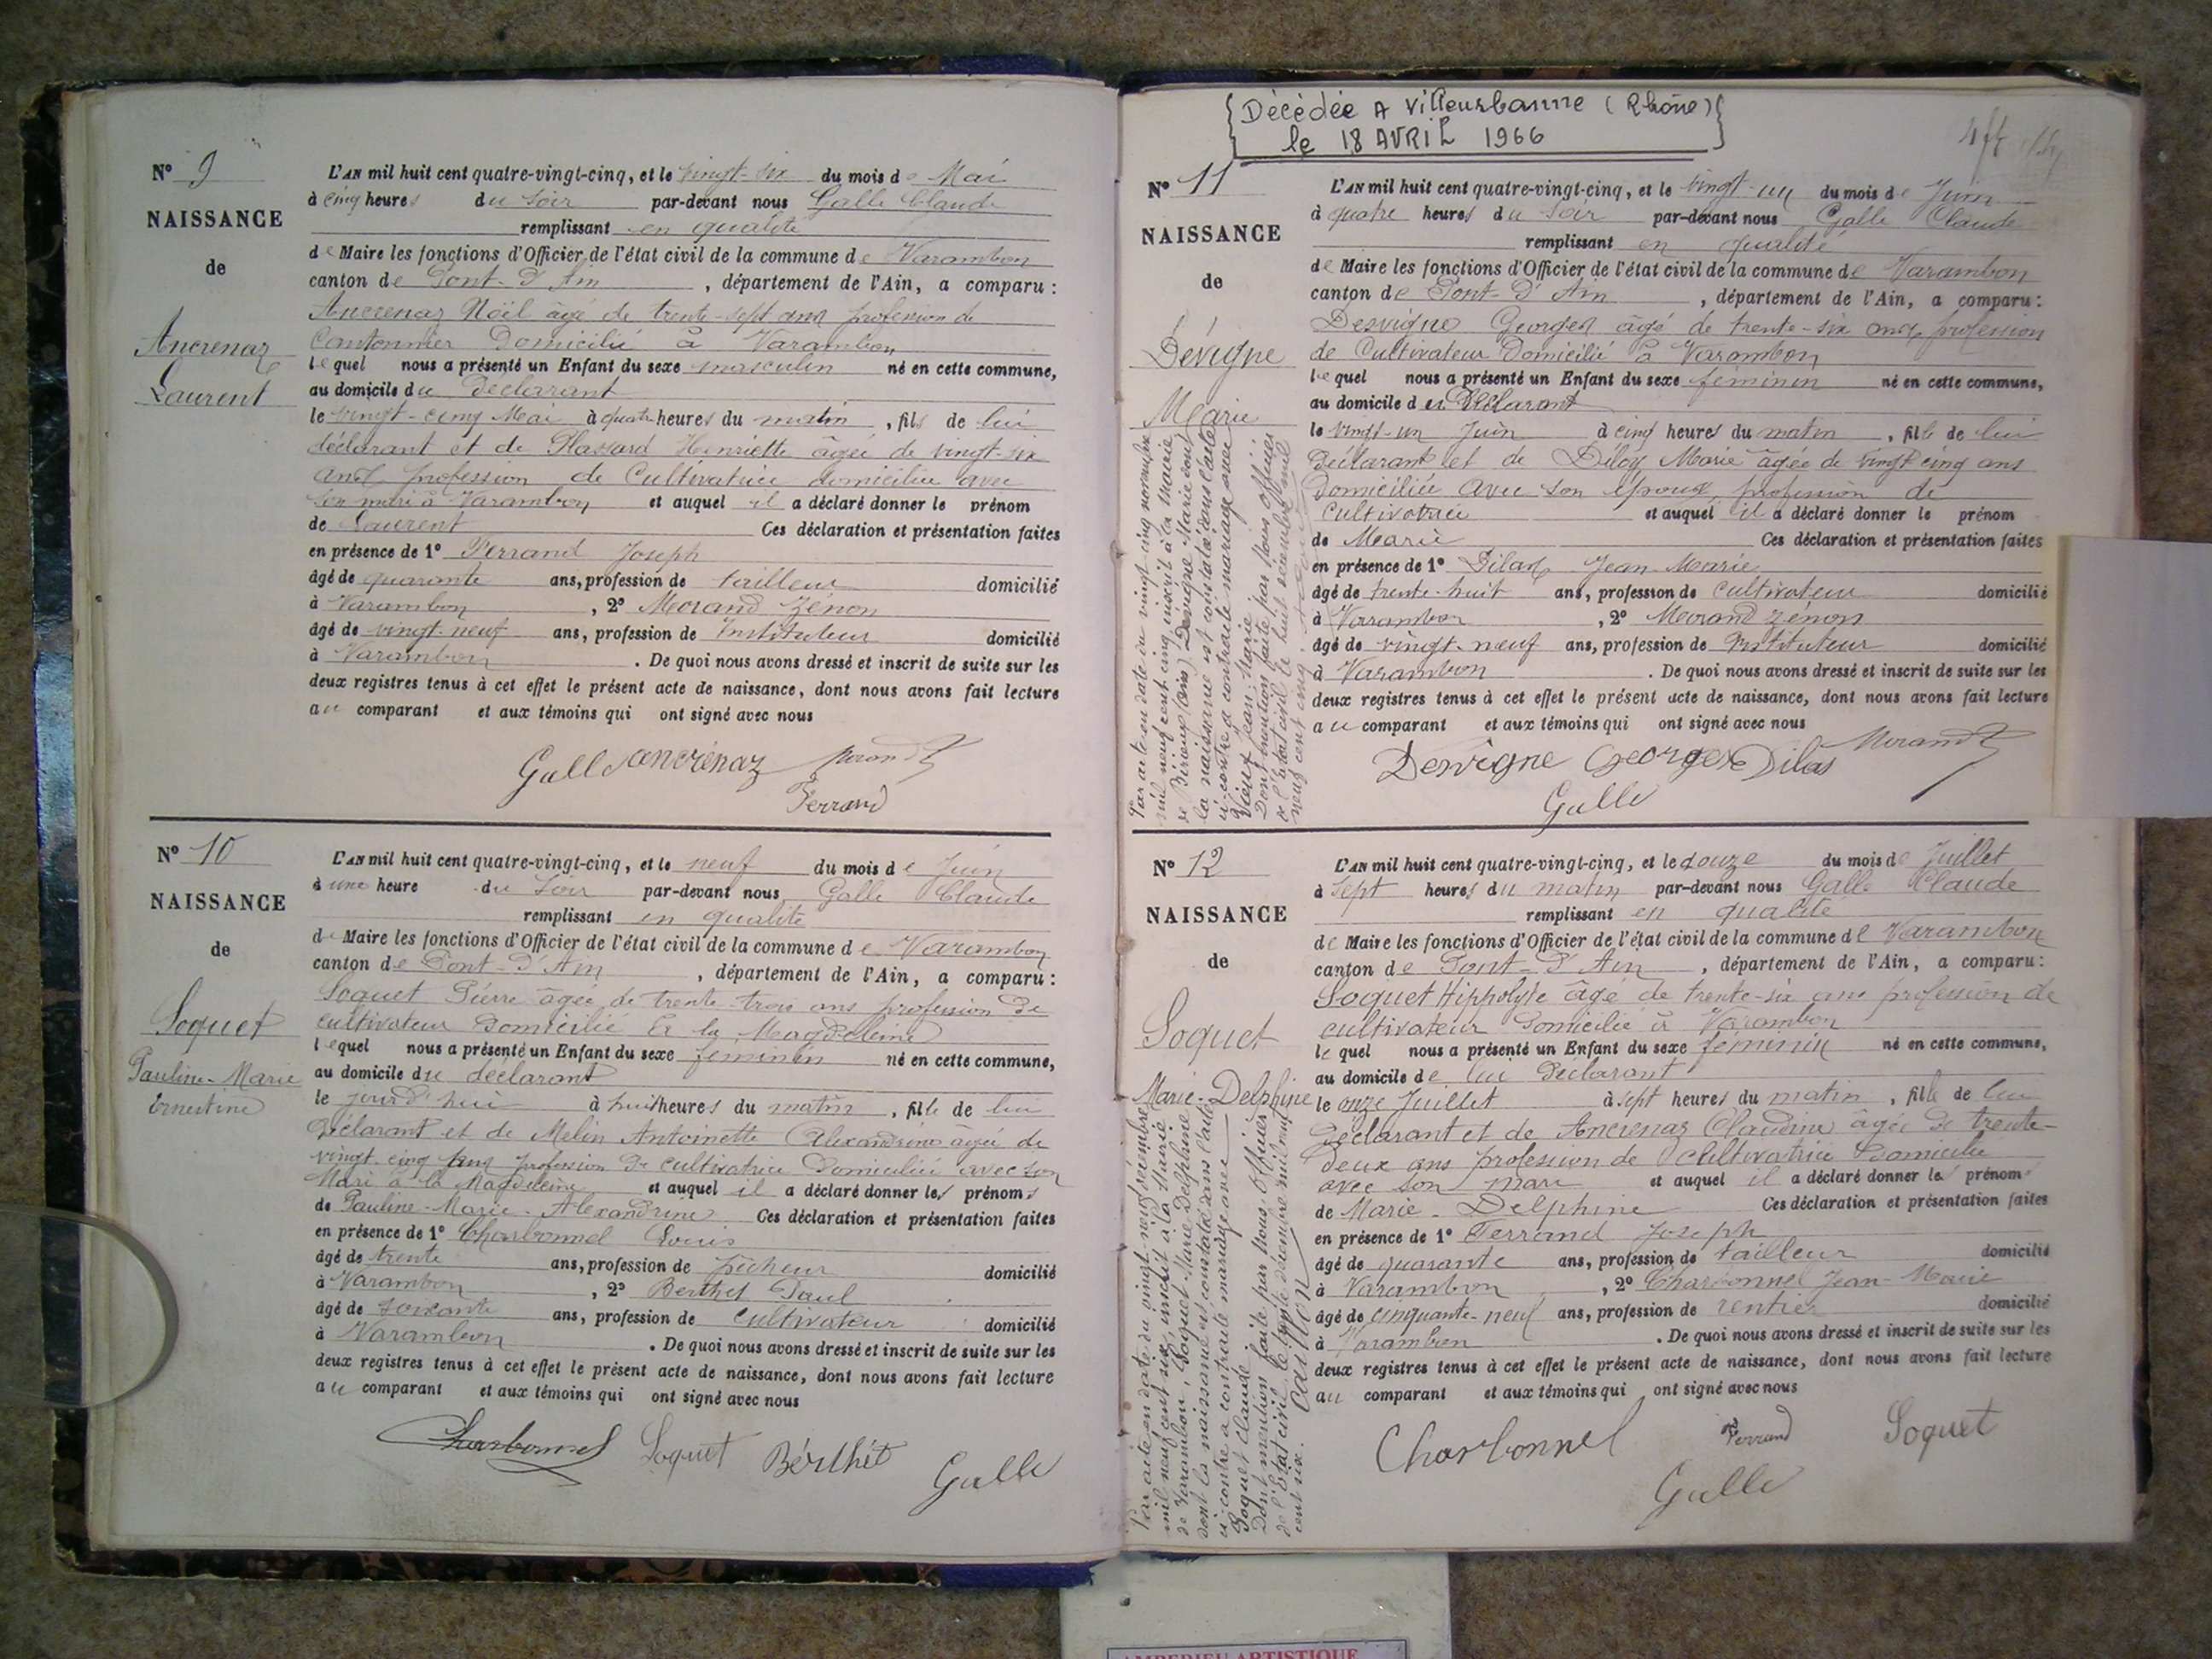 N° 9
NAISSANCE
de
Ancrenaz
Laurent
L'AN mil huit cent quatre-vingt-cinq, et le vingt-six du mois de Mai
à cinq heures du soir par-devant nous Galle Claude
remplissant en qualité
de Maire les fonctions d'Officier de l'état civil de la commune de Varambon
canton de Pont-d'Ain, département de l'Ain, a comparu :
Ancrenaz Noël âgé de trente-sept ans profession de
Cantonnier domicilié à Varambon
lequel nous a présenté un Enfant du sexe masculin né en cette commune,
au domicile du déclarant
le vingt-cinq Mai à quatre heures du matin, fils de lui
déclarant et de Plassard Henriette âgée de vingt-six
ans profession de Cultivatrice domiciliée avec
son mari à Varambon et auquel il a déclaré donner le prénom
de Laurent Ces déclaration et présentation faites
en présence de 1° Ferrand Joseph
âgé de quarante ans, profession de tailleur domicilié
à Varambon, 2° Morand Zénon
âgé de vingt-neuf ans, profession de Instituteur domicilié
à Varambon. De quoi nous avons dressé et inscrit de suite sur les
deux registres tenus à cet effet le présent acte de naissance, dont nous avons fait lecture
au comparant et aux témoins qui ont signé avec nous
Galle ancrenaz Morand
Ferrand
N° 10
NAISSANCE
de
Soquet
Pauline-Marie
Ernestine
L'AN mil huit cent quatre-vingt-cinq, et le neuf du mois de Juin
à une heure du soir par-devant nous Galle Claude
remplissant en qualité
de Maire les fonctions d'Officier de l'état civil de la commune de Varambon
canton de Pont-d'Ain, département de l'Ain, a comparu :
Soquet Pierre âgé de trente-trois ans profession de
cultivateur domicilié à la Magdeleine
lequel nous a présenté un Enfant du sexe féminin né en cette commune,
au domicile du déclarant
le jourd'hui à huit heures du matin, fille de lui
déclarant et de Melin Antoinette Alexandrine âgée de
vingt-cinq ans profession de cultivatrice domiciliée avec son
Mari à la Magdeleine et auquel il a déclaré donner les prénoms
de Pauline-Marie-Alexandrine Ces déclaration et présentation faites
en présence de 1° Charbonnel Louis
âgé de trente ans, profession de pêcheur domicilié
à Varambon, 2° Berthet Paul
âgé de soixante ans, profession de cultivateur domicilié
à Varambon. De quoi nous avons dressé et inscrit de suite sur les
deux registres tenus à cet effet le présent acte de naissance, dont nous avons fait lecture
au comparant et aux témoins qui ont signé avec nous
Charbonnel Soquet Bérthét
Galle
Décédée A Villeurbanne (Rhône)
le 18 AVRIL 1966
N° 11
NAISSANCE
de
Dévigne
Marie
Par acte en date du vingt-cinq novembre
mil neuf cent cinq, inscrit à la Mairie
de (Ain) Devigne Marie dont
la naissance est constatée dans l'acte
ci-contre a contracté mariage avec
Jean Marie
Dont mention faite par Nous Officier
de l'état civil le huit décembre mil
neuf cent cinq.
L'AN mil huit cent quatre-vingt-cinq, et le vingt-un du mois de Juin
à quatre heures du soir par-devant nous Galle Claude
remplissant en qualité
de Maire les fonctions d'Officier de l'état civil de la commune de Varambon
canton de Pont-d'Ain, département de l'Ain, a comparu :
Desvigne Georges âgé de trente-six ans, profession
de Cultivateur domicilié à Varambon
lequel nous a présenté un Enfant du sexe féminin né en cette commune,
au domicile du Déclarant
le vingt-un Juin à cinq heures du matin, fille de lui
Déclarant et de Diloy Marie âgée de vingt cinq ans
domiciliée avec son époux, profession de
Cultivatrice et auquel il a déclaré donner le prénom
de Marie Ces déclaration et présentation faites
en présence de 1° Dilas Jean-Marie
âgé de trente-huit ans, profession de cultivateur domicilié
à Varambon, 2° Morand Zénon
âgé de vingt-neuf ans, profession de Instituteur domicilié
à Varambon. De quoi nous avons dressé et inscrit de suite sur les
deux registres tenus à cet effet le présent acte de naissance, dont nous avons fait lecture
au comparant et aux témoins qui ont signé avec nous
Devigne Georges Dilas Morand
Galle
N° 12
NAISSANCE
de
Soquet
Marie-Delphine
Par acte en date du vingt-neuf décembre
mil neuf cent six, inscrit à la Mairie
de Varambon, Soquet Marie Delphine
dont la naissance est constatée dans l'acte
ci-contre a contracté mariage avec
Soquet Claude.
Dont mention faite par Nous, Officier
de l'état civil, le trente décembre mil neuf
cent six.
L'AN mil huit cent quatre-vingt-cinq, et le douze du mois de Juillet
à sept heures du matin par-devant nous Galle Claude
remplissant en qualité
de Maire les fonctions d'Officier de l'état civil de la commune de Varambon
canton de Pont-d'Ain, département de l'Ain, a comparu :
Soquet Hippolyte âgé de trente-six ans profession de
cultivateur domicilié à Varambon
lequel nous a présenté un Enfant du sexe féminin né en cette commune,
au domicile de lui Déclarant
le onze Juillet à sept heures du matin, fille de lui
déclarant et de Ancrenaz Claudine âgée de trente-
deux ans profession de Cultivatrice domiciliée
avec son mari et auquel il a déclaré donner les prénoms
de Marie-Delphine Ces déclaration et présentation faites
en présence de 1° Ferrand Joseph
âgé de quarante ans, profession de tailleur domicilié
à Varambon, 2° Charbonnel Jean-Marie
âgé de cinquante-neuf ans, profession de rentier domicilié
à Varambon. De quoi nous avons dressé et inscrit de suite sur les
deux registres tenus à cet effet le présent acte de naissance, dont nous avons fait lecture
au comparant et aux témoins qui ont signé avec nous
Charbonnel Ferrand Soquet
Galle